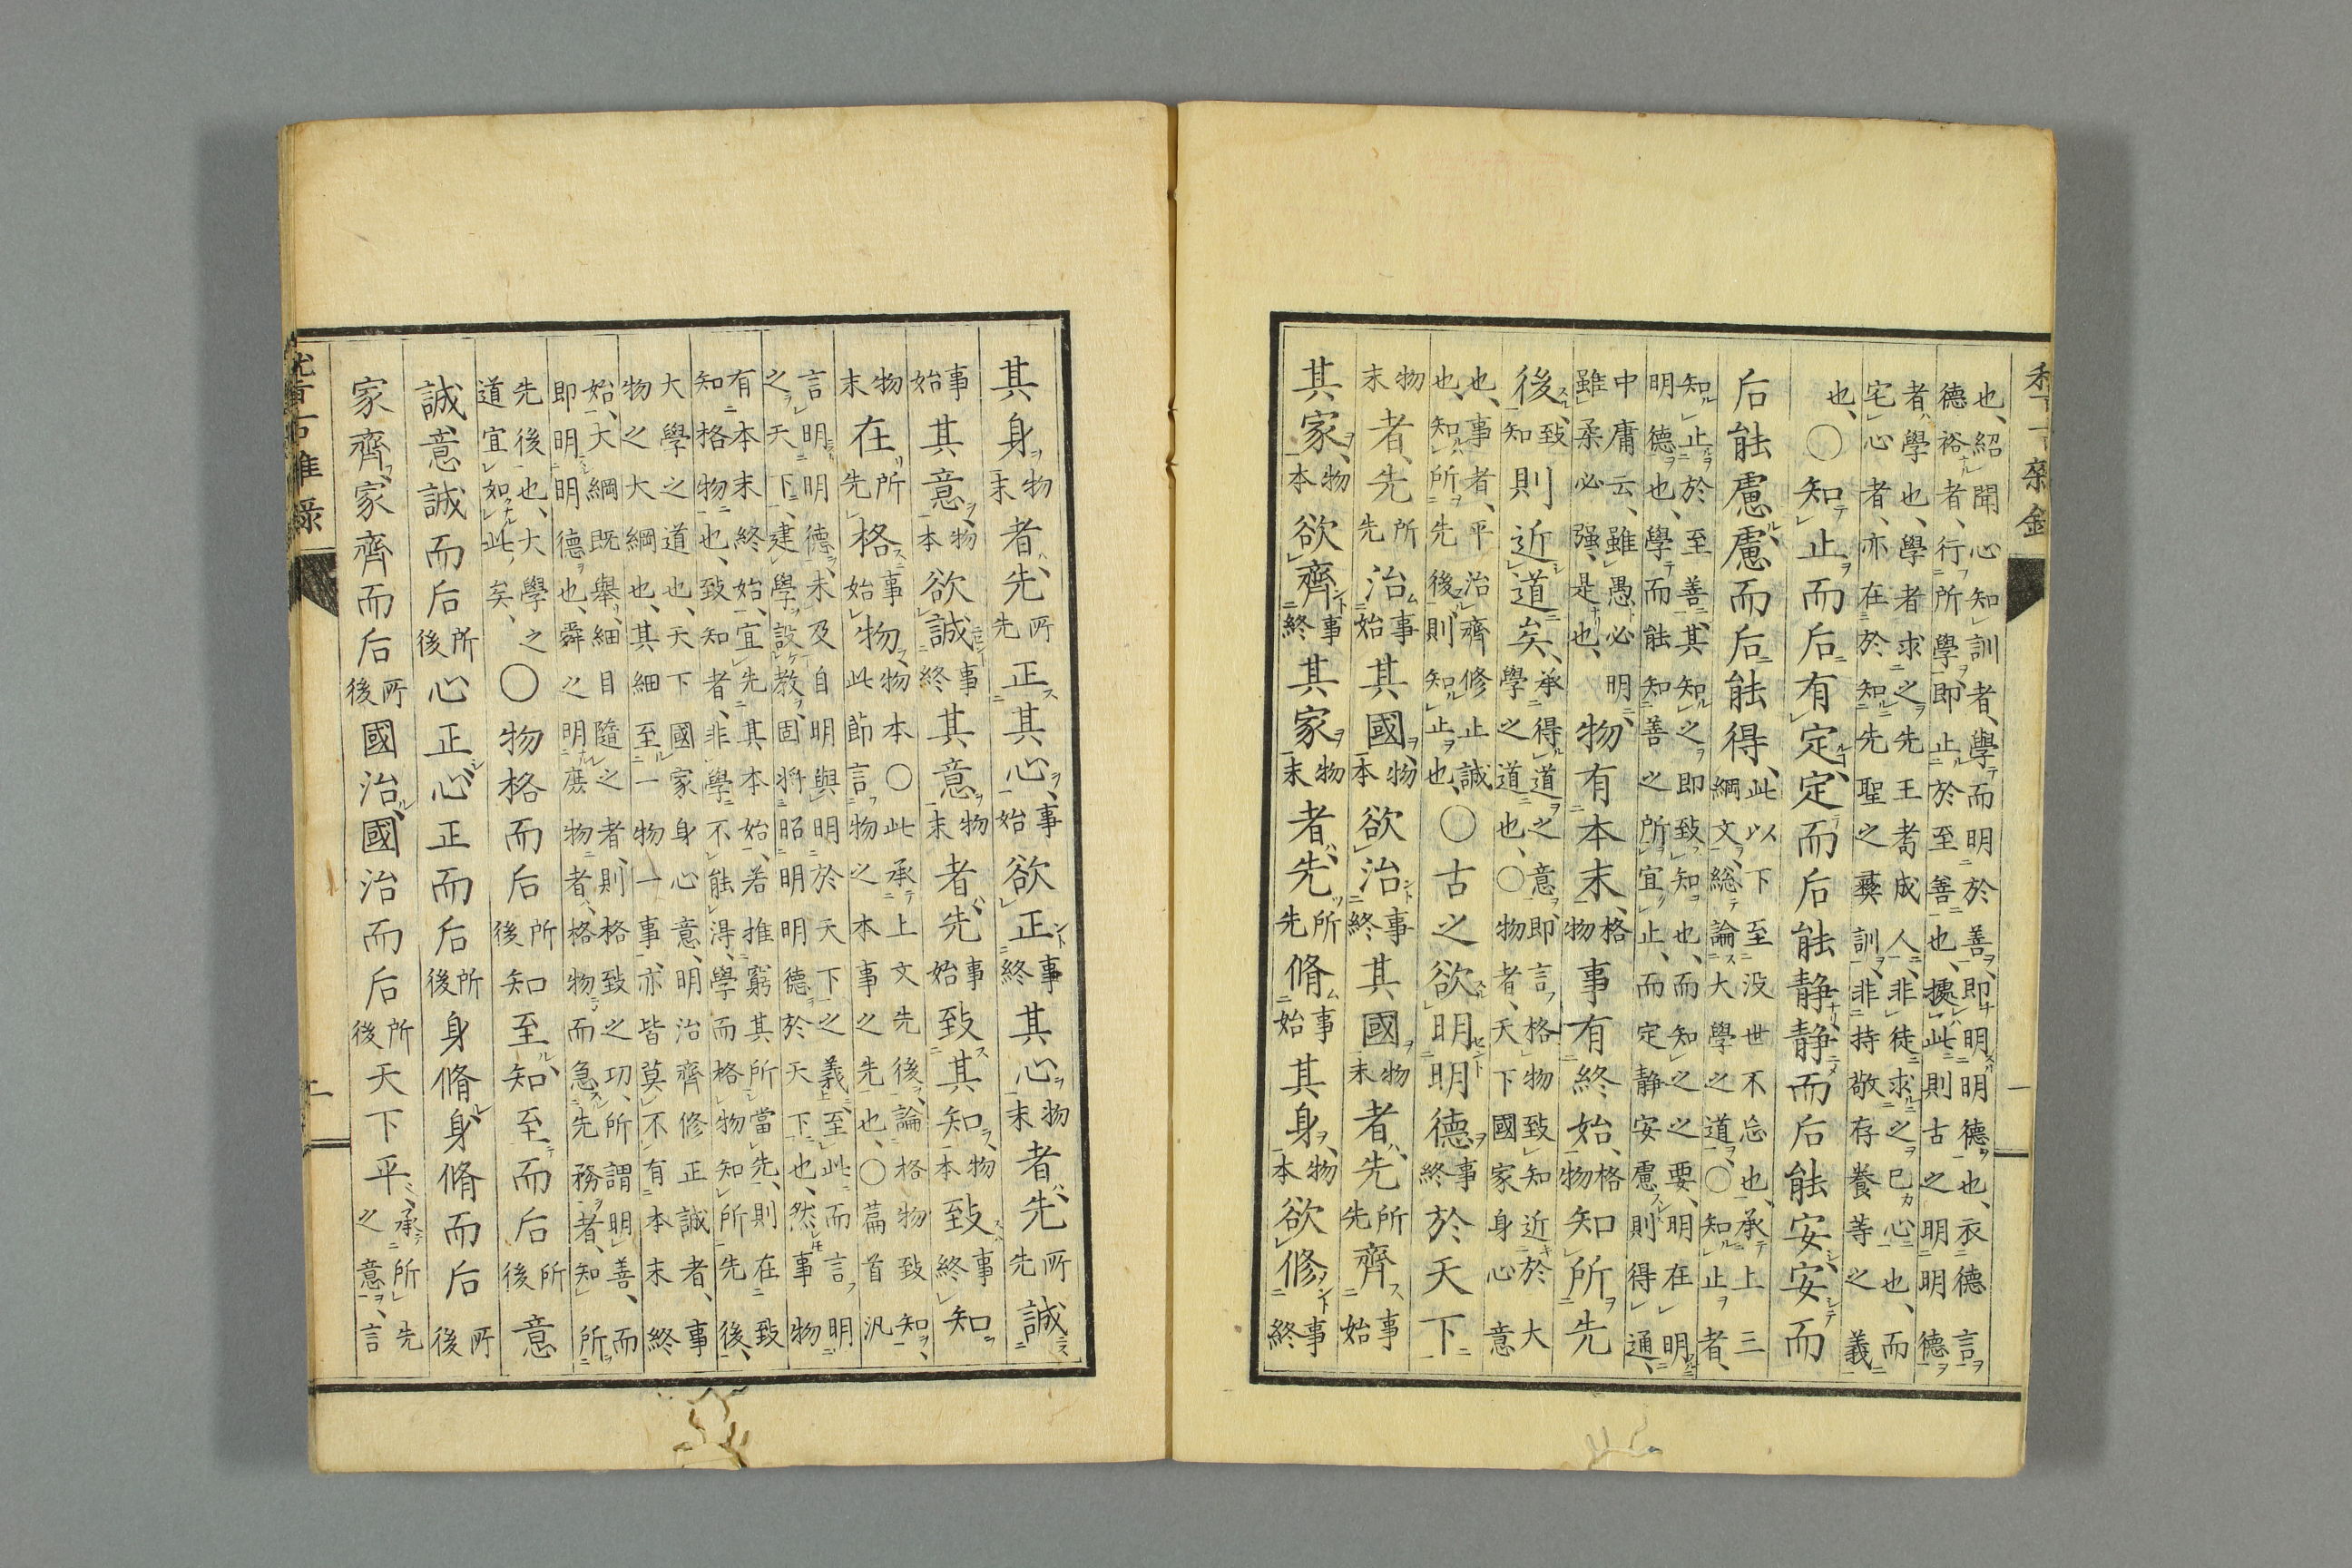 也、紹聞心知訓者、學而明於善、即明明德也、衣德言
德裕者、行所學、即止於至善也、據此則古之明明德
者、學也、學者求之先王耈成人、非徒求之己心也、而
宅心者、亦在於知先聖之彝訓、非持敬存養等之義
也、〇知止而后有定、定而后能静静而后能安、安而
后能慮、慮而后能得、此以下至没世不忘也、承上三
綱文、総論大學之道、〇知止者、
知止於至善、其知之即致知也、而知之之要、明在明
明德也、學而能知善之所宜止、而定静安慮則得通、
中庸云、雖愚必明、
雖柔必强、是也、物有本末、格物事有終始、格物知所先
後、致知則近道矣、承得道之意、即言格物致知近於大
學之道也、〇物者、天下國家身心意
也、事者、平治齊修正誠
也、知所先後則知止也、〇古之欲明明德事終於天下
物末者、先所先治事始其國、物本欲治事終其國物末者、先所先齊事始
其家、物本欲齊事終其家物末者、先所先脩事始其身、物本欲修事終
其身物末者、先所先正其心、事始欲正事終其心物末者、先所先誠
事始其意、物本欲誠事終其意物末者、先事始致其知、物本致事終知
物末在所先格事始物、物本〇此承上文先後、論格物致知、
此節言物之本事之先也、〇篇首汎
言明明德、未及自明與明於天下之義、至此而言明
之天下、建學設教、固將昭明明德於天下也、然事物
有本末終始、宜先其本始、若推窮其所當先、則在致
知格物也、致知者、非學不能得、學而格物知所先後、
大學之道也、天下國家身心意、明治齊修正誠者、事
物之大綱也、其細至一物一事、亦皆莫不有本末終
始、大綱既舉、細目隨之者、則格致之功、所謂明善、而
即明明德也、舜之明庶物者、格物而急先務者、知所
先後也、大學之
道宜如此矣、〇物格而后所後知至、知至而后所後意
誠、意誠而后所後心正、心正而后所後身脩、身脩而后所後
家齊、家齊而后所後國治、國治而后所後天下平、承所先
之意、言